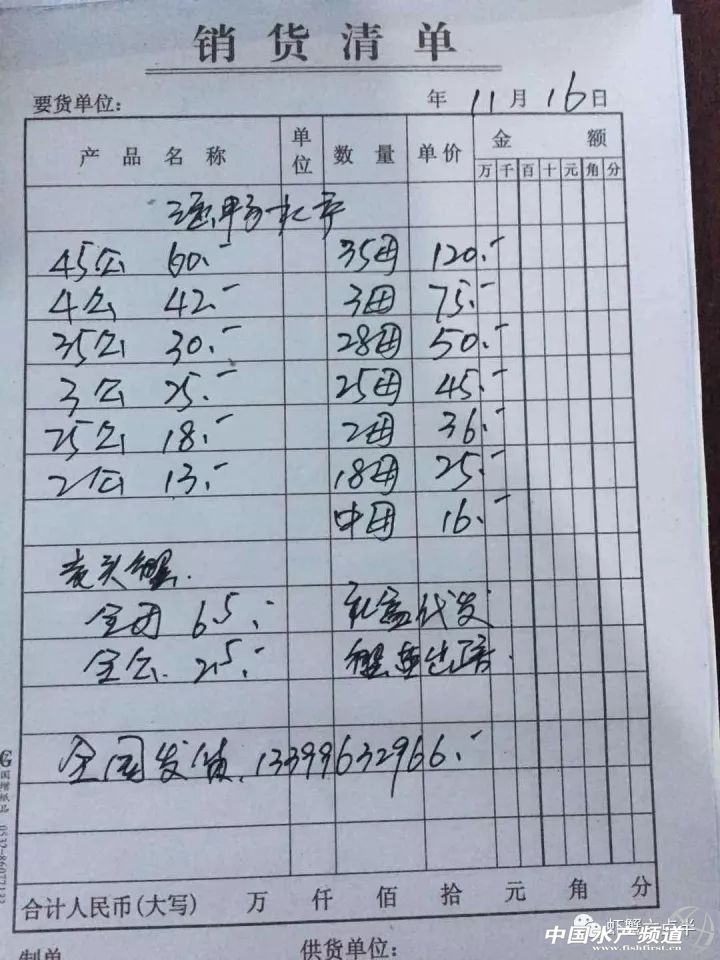 销货清单
要货单位： 年 11 月 16 日
产品名称 单位 数量 单价 金额
万 千 百 十 元 角 分
45公 60.- 35母 120.-
4公 42.- 3母 75.-
35公 30.- 28母 50.-
3公 25.- 25母 45.-
25公 18.- 2母 36.-
2公 13.- 18母 25.-
中母 16.-
蟹.
全母 65.- 礼盒代发
全公. 25.- 蟹
全国发货. 13399632966.-
合计人民币(大写) 万 仟 佰 拾 元 角 分
制单 供货单位：
虾蟹六点半
中国水产频道
www.fishfirst.cn